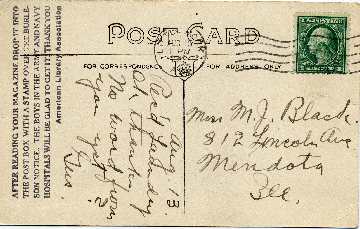 POST CARD
FOR CORRESPONDENCE
FOR ADDRESS ONLY
AFTER READING YOUR MAGAZINE DROP IT INTO
THE POST BOX WITH A STAMP OVER THE BURLE-
SON NOTICE. THE BOYS IN THE ARMY AND NAVY
HOSPITALS WILL BE GLAD TO GET IT. THANK YOU
American Library Association
Aug 13
Rec'd Laundry
OK thanks.
No word from
you yet?
Gus.
Miss M. J. Black.
812 Lincoln Ave
Mendota
Ill.